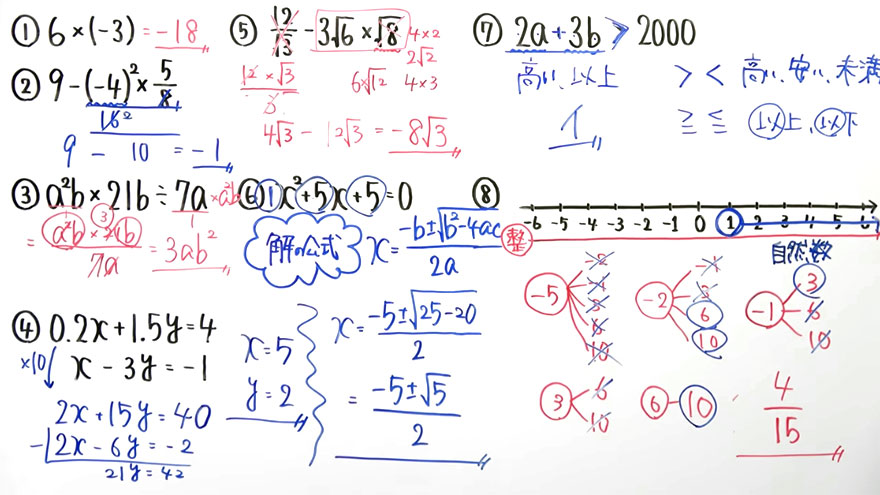 ① 6×(-3)=-18
② 9-(-4)²×5/8
16²
9 - 10 = -1
③ a²b×21b÷7a ×a²b
1
= a²b×21b/7a = 3ab²
3
④ 0.2x+1.5y=4
×10 x-3y=-1
2x+15y=40
-) 2x-6y=-2
21y=42
x=5
y=2
⑤ 12/√3-3√6×√8
4×2
2√2
12×√3/3
6√12 4×3
4√3-12√3=-8√3
⑥ 1x²+5x+5=0
解の公式 x=-b±√b²-4ac/2a
x=-5±√25-20/2
=-5±√5/2
⑦ 2a+3b>2000
高い、以上 > < 高い、安い、未満
1 ≧ ≦ 以上、以下
⑧
-6 -5 -4 -3 -2 -1 0 1 2 3 4 5 6
整 自然数
-5 -2 -1 3
6 6
10 10 10
3 6 6 10
10
4/15